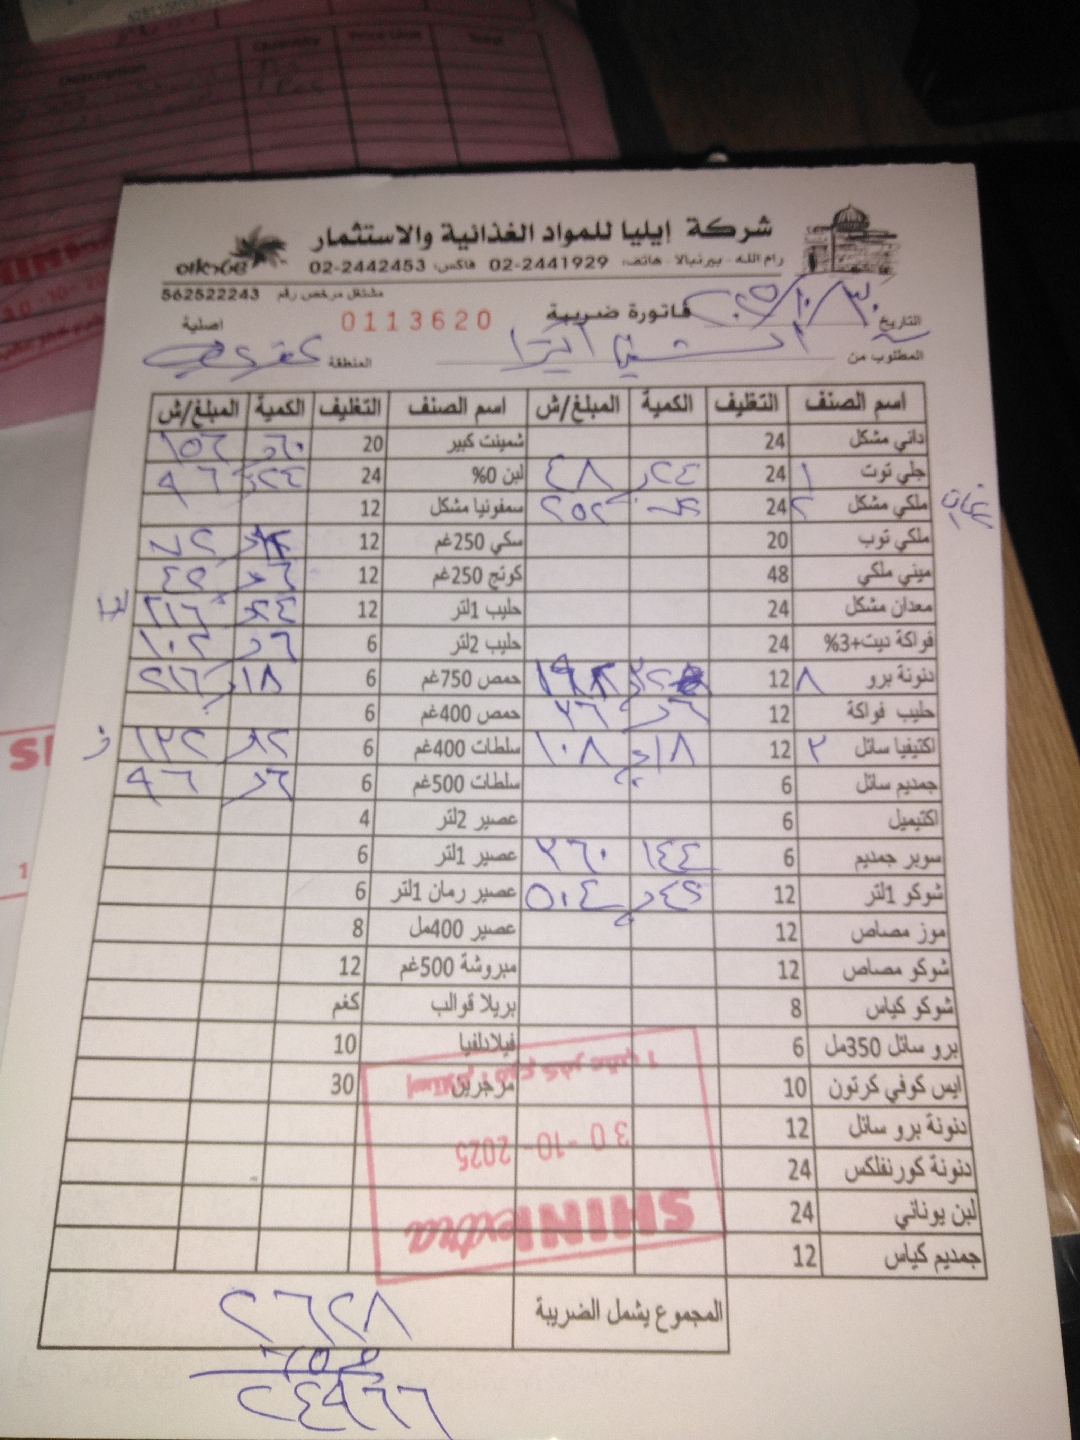 Description Quantity Price Unit Total
شركة إيليا للمواد الغذائية والاستثمار
رام الله - بيرنبالا - هاتف: 02-2441929 فاكس: 02-2442453
مشتغل مرخص رقم 562522243
التاريخ
فاتورة ضريبة
0113620
اصلية
المطلوب من
المنطقة
اسم الصنف التغليف الكمية المبلغ/ش اسم الصنف التغليف الكمية المبلغ/ش
داني مشكل 24 شمينت كبير 20 ٦٠ ١٥٦
جلي توت ١ 24 ٢٤ ٤٨ لبن 0% 24 ٢٤ ٩٦
ملكي مشكل ٢ 24 ٢٥٢ سمفونيا مشكل 12
ملكي توب 20 سكي 250غم 12 ٧٢
ميني ملكي 48 كوتج 250غم 12 ٦ ٤٢
معدان مشكل 24 حليب 1لتر 12 ٢٤ ٢١٦
فواكة ديت+3% 24 حليب 2لتر 6 ٦ ١٠٢
دنونة برو ٨ 12 حمص 750غم 6 ١٨ ٢١٦
حليب فواكة 12 ٦ ٣٦ حمص 400غم 6
اكتيفيا سائل ٢ 12 ١٨ ١٠٨ سلطات 400غم 6 ١٢ ١٣٢
جمديم سائل 6 سلطات 500غم 6 ٦ ٩٦
اكتيميل 6 عصير 2لتر 4
سوبر جمديم 6 ١٤٤ ٣٦٠ عصير 1لتر 6
شوكو 1لتر 12 ٥٠٤ عصير رمان 1لتر 6
موز مصاص 12 عصير 400مل 8
شوكو مصاص 12 مبروشة 500غم 12
شوكو كياس 8 بريلا قوالب كغم
برو سائل 350مل 6 فيلادلفيا 10
ايس كوفي كرتون 10 مرجرين 30
دنونة برو سائل 12
دنونة كورنفلكس 24
لبن يوناني 24
جمديم كياس 12
30-10-2025
SHINI extra
المجموع يشمل الضريبة ٢٦٢٨